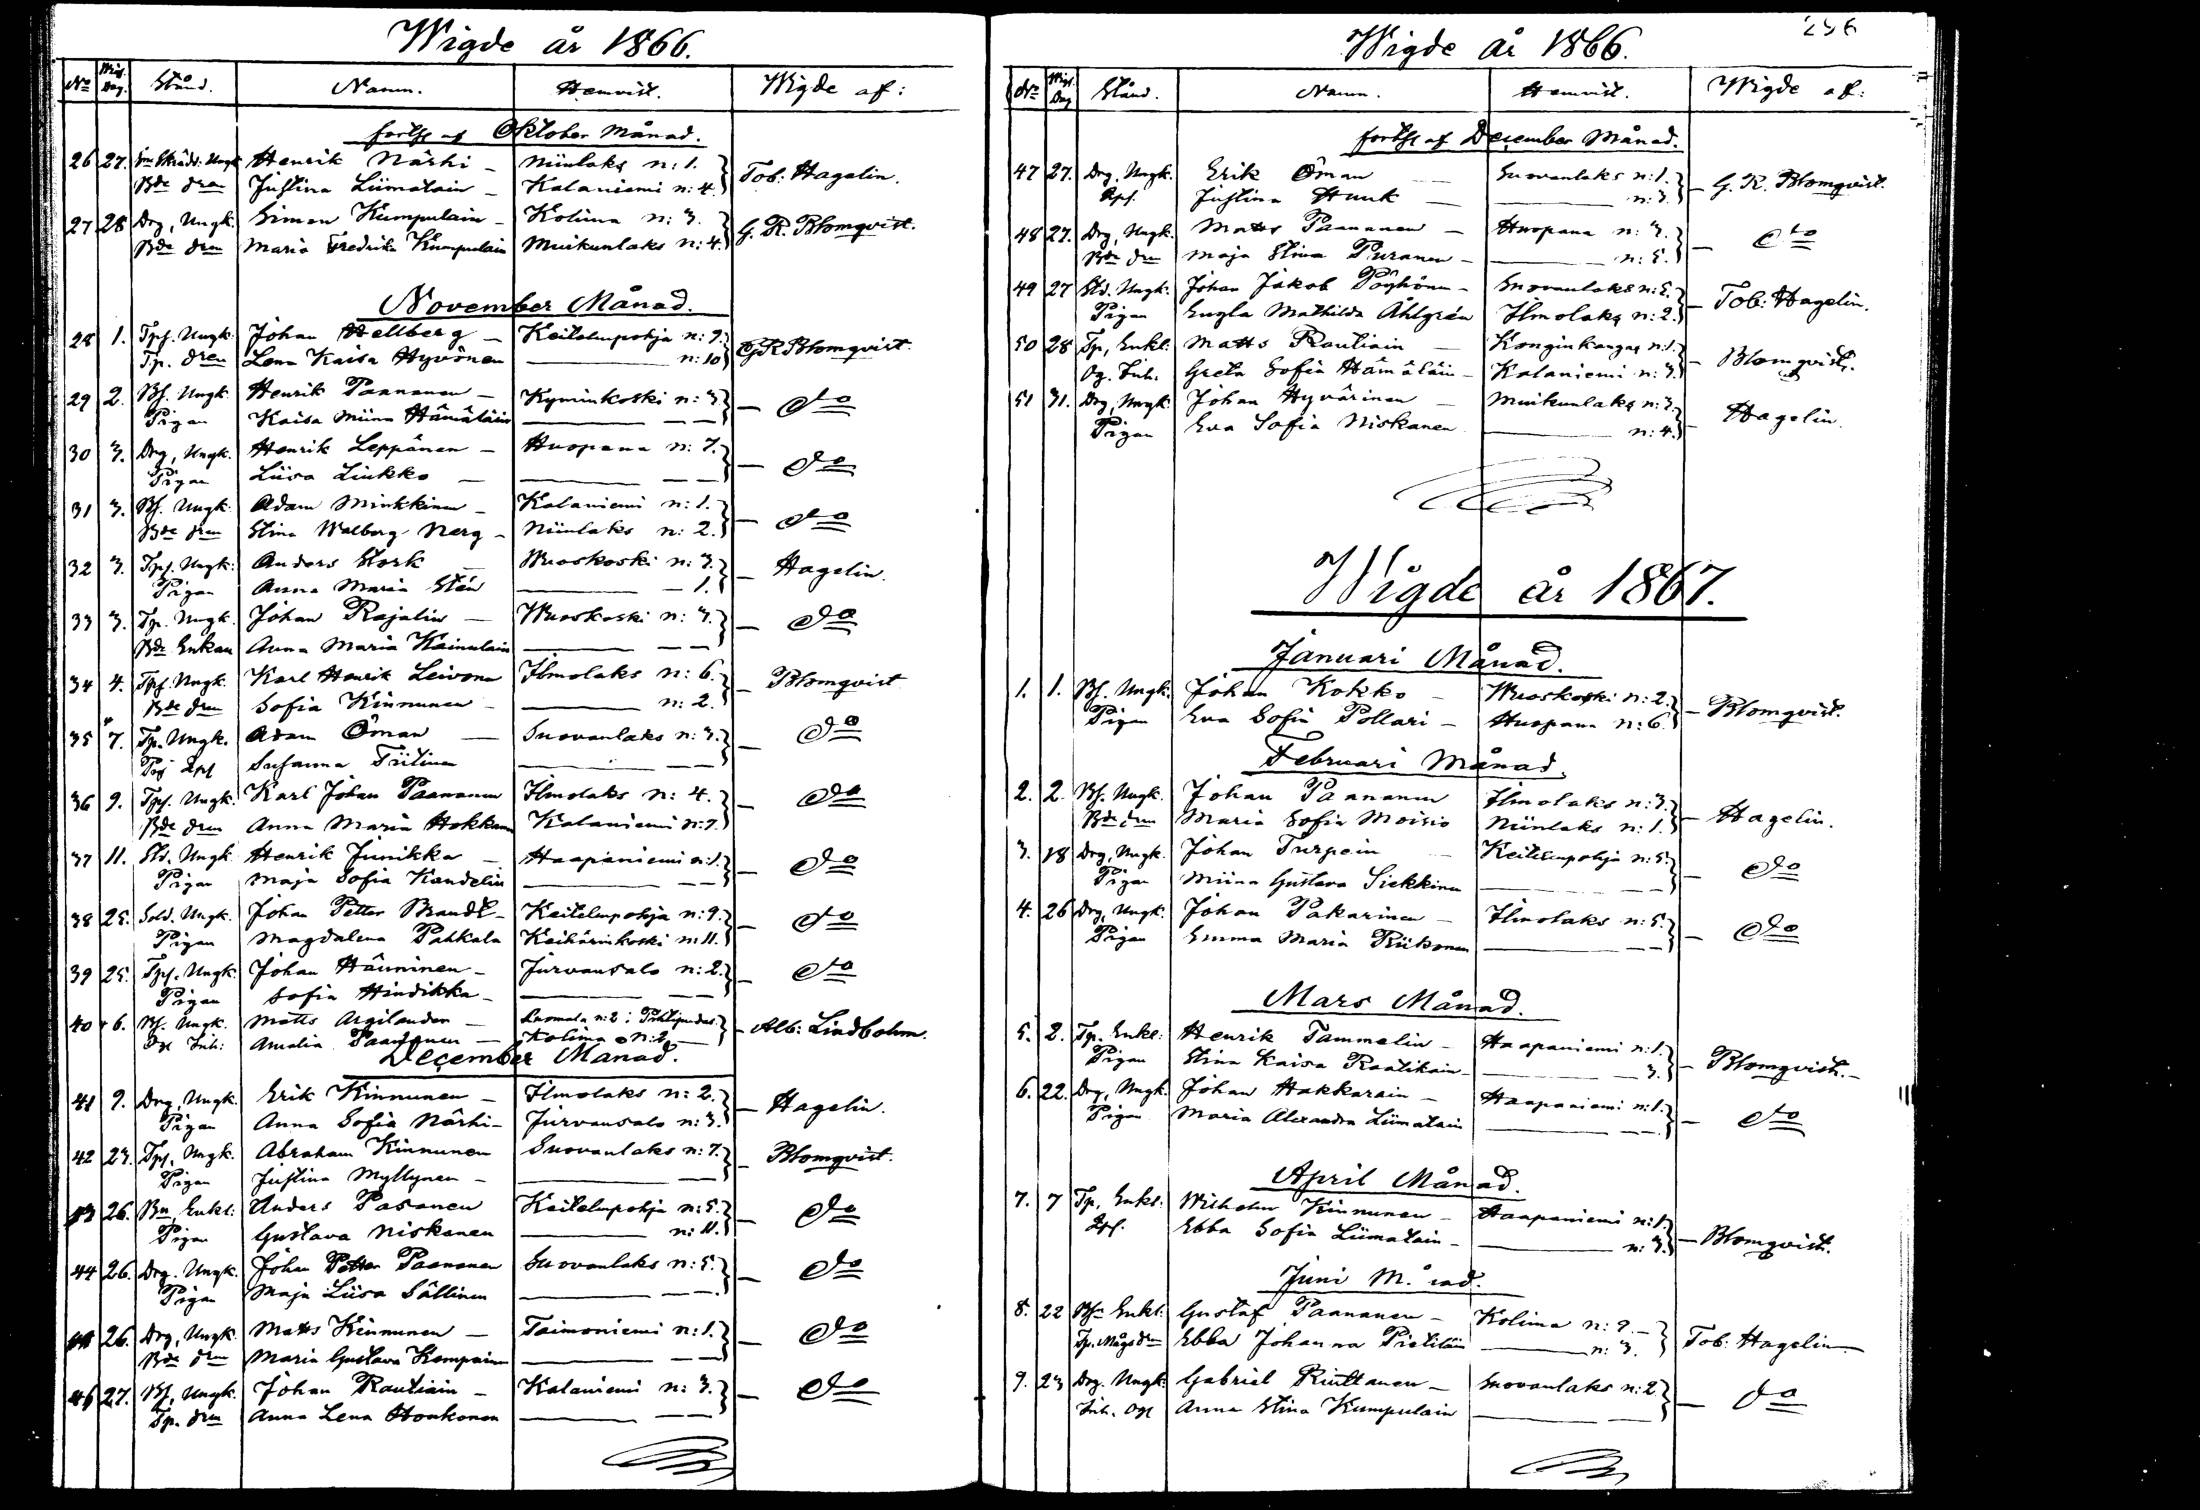 Wigde år 1866.
No Wigs. Dag. Stånd. Namn. Hemvist. Wigde af:
forts af Oktober Månad.
26 27. Ungk Henrik Närhi – Niinlaks n: 1.
Bde drn Justina Liimatain – Kalaniemi n: 4. Tob: Hagelin.
27 28 Drg, Ungk. Simon Kumpulain – Kolima n: 3.
Bde drn Maria Fredrika Kumpulain Muikunlaks n: 4. G. R. Blomqvist.
November Månad.
28 1. Tpf. Ungk. Johan Hellberg – Keitelenpohja n: 9.
Tp. dren Lena Kaisa Hyvönen n: 10 GR Blomqvist
29 2. Bf. Ungk. Henrik Paananen – Kyminkoski n: 3.
Pigan Kaisa Miina Hämäläin — — do
30 3. Drg, Ungk. Henrik Leppänen – Huopana n: 7.
Pigan Liisa Liukko — — do
31 3. Bf. Ungk. Adam Minkkinen – Kalaniemi n: 1.
Bde drn Stina Walborg Nerg – Niinlaks n: 2. – do
32 3. Tpf. Ungk. Anders Stork – Wuoskoski n: 3.
Pigan Anna Maria Stén — 1. – Hagelin.
33 3. Tp. Ungk. Johan Rajalin – Wuoskoski n: 3.
Bde Enkan Anna Maria Kainulain — — do
34 4. Tpf. Ungk. Karl Henrik Leivonen Ilmolaks n: 6.
Bde drn Sofia Kinnunen – n: 2. – Blomqvist
35 7. Tp. Ungk. Adam Öman — Suovanlaks n: 3.
Susanna Tiitinen — — do
36 9. Tpf. Ungk. Karl Johan Paananen Ilmolaks n: 4.
Bde drn Anna Maria Hokkanen Kalaniemi n: 7. – do
37 11. Sld. Ungk Henrik Junikka – Haapaniemi n: 1.
Pigan Maja Sofia Kandelin — — do
38 25. Sold. Ungk. Johan Petter Brandt – Keitelenpohja n: 9.
Pigan Magdalena Pahkala Keihärinkoski n: 11. – do
39 25. Tpf. Ungk. Johan Hänninen – Jurvansalo n: 2.
Pigan Sofia Hindikka – — do
40 6. Bf. Ungk. Matts Argilander – n: 2 i Pihtipudas.
Inh: Amalia Paananen – Kolima n: 2 – Alb: Lindbohm.
December Månad.
41 9. Drg, Ungk. Erik Kinnunen – Ilmolaks n: 2.
Pigan Anna Sofia Närhi – Jurvansalo n: 3. – Hagelin.
42 23. Tpf. Ungk. Abraham Kinnunen Suovanlaks n: 7.
Pigan Justina Myllynen – — Blomqvist.
43 26. Bn, Enkl: Anders Pasanen Keitelenpohja n: 5.
Pigan Gustava Niskanen n: 11. – do
44 26. Drg. Ungk. Johan Petter Paananen Suovanlaks n: 5.
Pigan Maja Liisa Sällinen — — do
26. Drg, Ungk. Matts Kinnunen – Taimoniemi n: 1.
Bde drn Maria Gustava Kempainen — — do
46 27. Bf, Ungk. Johan Rautiain – Kalaniemi n: 3.
Tp. drn Anna Lena Honkonen — — do
236
Wigde år 1866.
No Wigs. Dag Stånd. Namn. Hemvist. Wigde af:
forts af December Månad.
47 27. Drg. Ungk. Erik Öman — Suovanlaks n: 1.
Justina Hunk — n: 3. – G. R. Blomqvist.
48 27. Drg, Ungk. Matts Paananen – Huopana n: 3.
Bde drn Maja Stina Puranen – n: 5. – do
49 27 Sld. Ungk. Johan Jakob Pöyhönen – Suovanlaks n: 5.
Pigan Engla Mathilda Åhlgrén Ilmolaks n: 2. – Tob: Hagelin.
50 28 Tp, Enkl: Matts Rautiain — Konginkangas n: 1.
Inh. Greta Sofia Hämäläin – Kalaniemi n: 3. – Blomqvist.
51 31. Drg, Ungk: Johan Hyvärinen – Muikunlaks n: 3.
Pigan Eva Sofia Niskanen n: 4. – Hagelin.
Wigde år 1867.
Januari Månad.
1. 1. Bf. Ungk. Johan Kokko – Wuoskoski n: 2.
Pigan Eva Sofia Pollari – Huopana n: 6. – Blomqvist.
Februari Månad.
2. 2 Bf. Ungk. Johan Paananen Ilmolaks n: 3.
Bde drn Maria Sofia Moisio Niinlaks n: 1. – Hagelin.
3. 18 Drg, Ungk. Johan Turpein – Keitelenpohja n: 5.
Pigan Miina Gustava Siekkinen — — do
4. 26 Drg, Ungk: Johan Pakarinen – Ilmolaks n: 5.
Pigan Emma Maria Riikonen — — do
Mars Månad.
5. 2. Tp. Enkl: Henrik Tammelin – Haapaniemi n: 1.
Pigan Stina Kaisa Raatikain – 3. – Blomqvist. –
6. 22. Drg, Ungk. Johan Hakkarain – Haapaniemi n: 1.
Pigan Maria Alexandra Liimatain — — do
April Månad.
7. 7 Tp, Enkl: Wilhelm Kinnunen – Haapaniemi n: 1.
Ebba Sofia Liimatain – n: 3. – Blomqvist.
Juni Månad.
8. 22 Bfn Enkl: Gustaf Paananen – Kolima n: 9. –
Tp. Mågs drn Ebba Johanna Pietiläin n: 3. Tob: Hagelin
9. 23 Drg. Ungk: Gabriel Rinttanen – Suovanlaks n: 2.
Inh. Anna Stina Kumpulain — — do